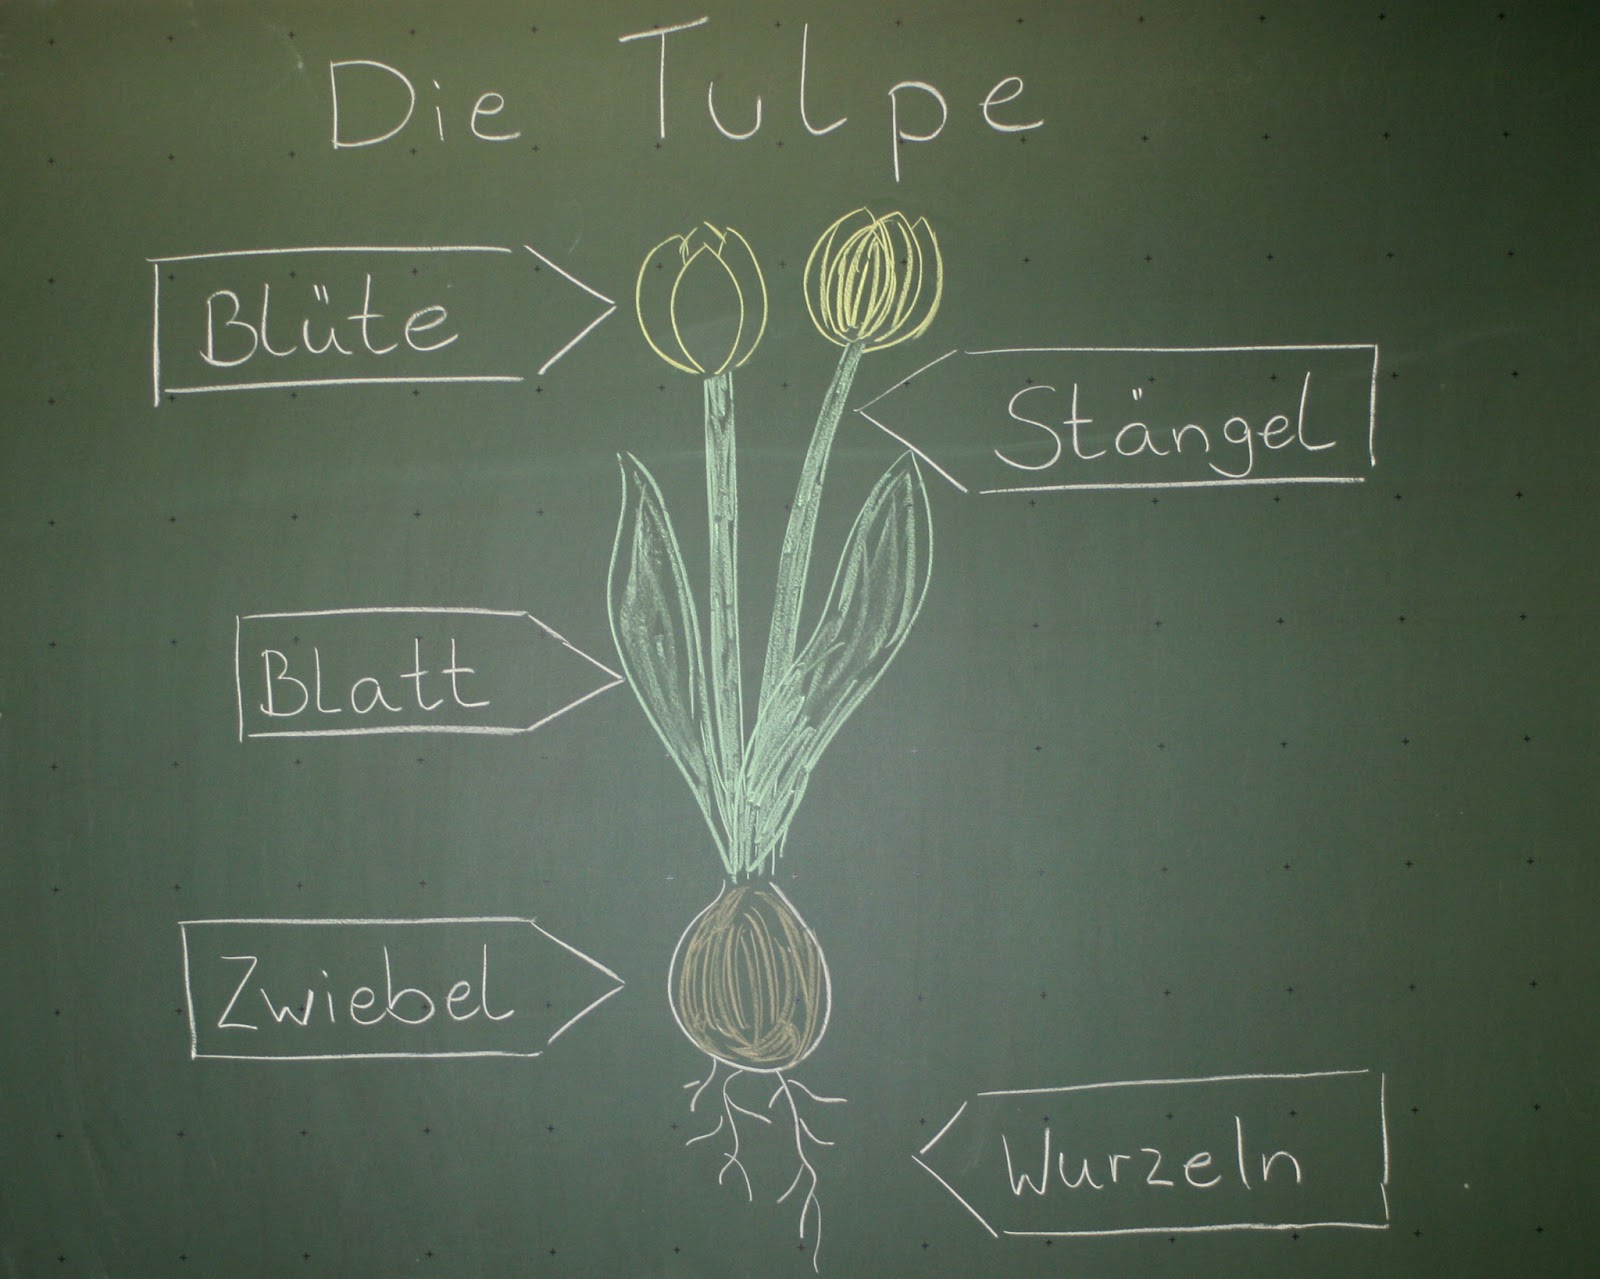 Die Tulpe
Blüte
Stängel
Blatt
Zwiebel
Wurzeln